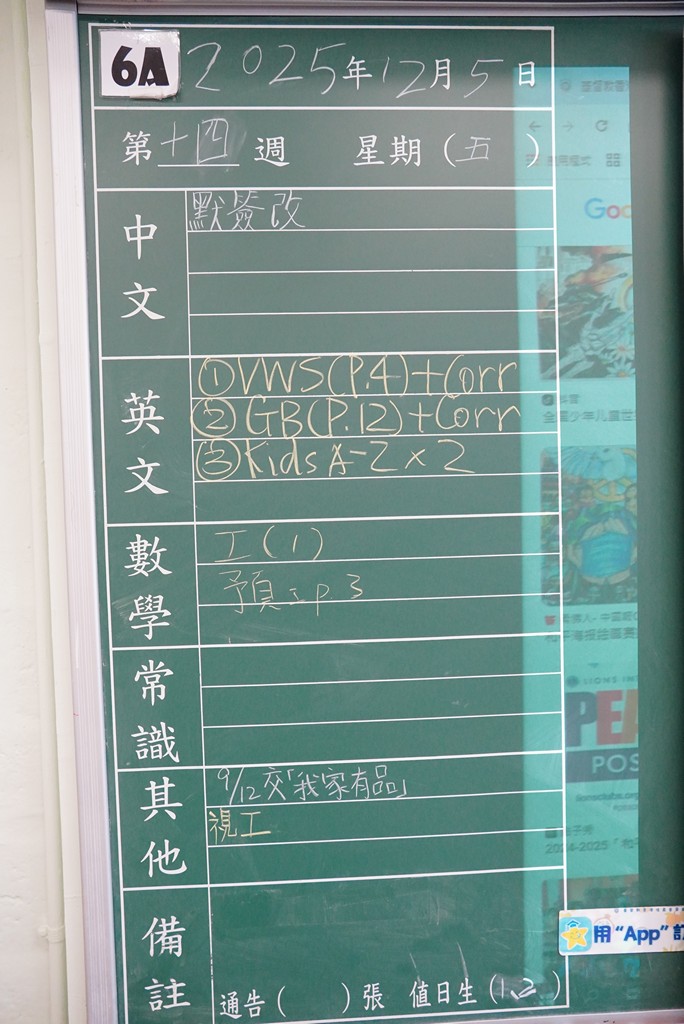 6A 2025年12月5日
第十四週 星期(五)
中文
默簽改
英文
①VWS(P.4)+Corr
②GB(P.12)+Corr
③Kids A-Z×2
數學
工(1)
預工p3
常識
其他
9/12交「我家有品」
視工
備註
通告( )張 值日生(1,2)
Goo
全國少年儿童世
PEA
POS
2024-2025「和
用“App”訂